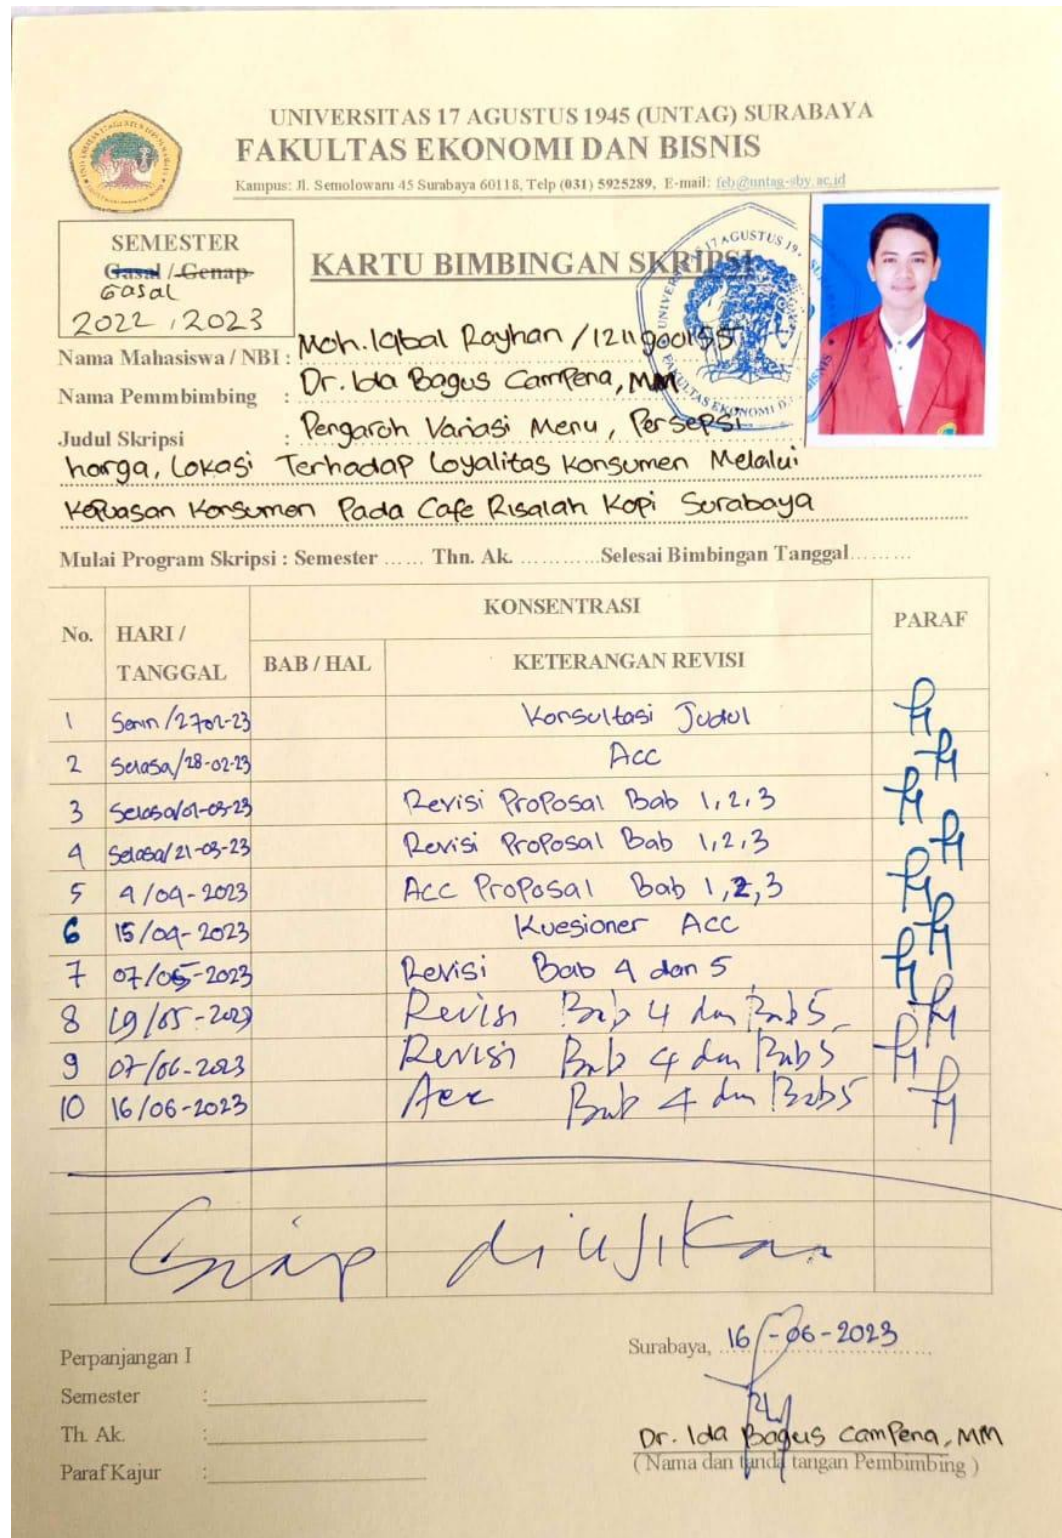 UNIVERSITAS 17 AGUSTUS 1945 (UNTAG) SURABAYA
FAKULTAS EKONOMI DAN BISNIS
Kampus: Jl. Semolowaru 45 Surabaya 60118, Telp (031) 5925289, E-mail: feb@untag-sby.ac.id
SEMESTER
Gasal / Genap
Gasal
2022 / 2023
KARTU BIMBINGAN SKRIPSI
Nama Mahasiswa / NBI : Moh. Iqbal Rayhan /
Nama Pemmbimbing : Dr. Ida Bagus Campena, MM
Judul Skripsi : Pengaroh Variasi Menu, Persepsi
harga, Lokasi Terhadap Loyalitas Konsumen Melalui
Kepuasan Konsumen Pada Cafe Risalah Kopi Surabaya
Mulai Program Skripsi : Semester ...... Thn. Ak. ............Selesai Bimbingan Tanggal.........
No. HARI / TANGGAL KONSENTRASI PARAF
BAB / HAL KETERANGAN REVISI
1 Senin /2702-23 Konsultasi Judul
2 Selasa/28-02-23 Acc
3 Selasa/01-03-23 Revisi Proposal Bab 1,2,3
4 Selasa/21-03-23 Revisi Proposal Bab 1,2,3
5 4/04-2023 Acc Proposal Bab 1,2,3
6 15/04-2023 Kuesioner Acc
7 07/05-2023 Revisi Bab 4 dan 5
8 19/05-2023 Revisi Bab 4 dan Bab 5
9 07/06-2023 Revisi Bab 4 dan Bab 5
10 16/06-2023 Acc Bab 4 dan Bab 5
Siap diujikan
Perpanjangan I
Semester :
Th. Ak. :
Paraf Kajur :
Surabaya, 16-06-2023
Dr. Ida Bagus Campena, MM
( Nama dan tanda tangan Pembimbing )
UNIVERSITAS 17 AGUSTUS 19
FAKULTAS EKONOMI